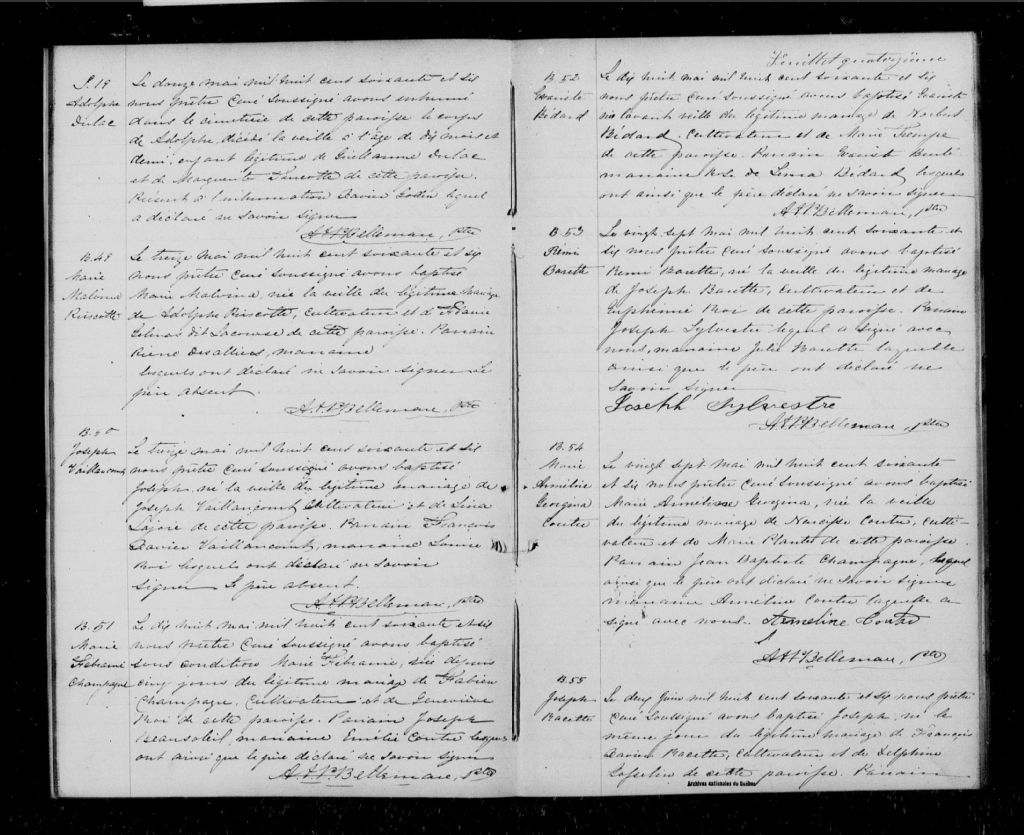 S. 18
Adolphe
Dulac
Le douze mai mil huit cent soixante et six
nous prêtre Curé soussigné avons inhumé
dans le cimetière de cette paroisse le corps
de Adolphe, décédé la veille à l'âge de dix mois et
demi, enfant légitime de Guillaume Dulac
et de Marguerite Turcotte de cette paroisse.
Présent à l'inhumation Xavier Godin lequel
a déclaré ne savoir signer
A.H.Bellemare, Ptre
B. 49
Marie
Malvina
Le treize mai mil huit cent soixante et six
nous prêtre Curé soussigné avons baptisé
Marie Malvina, née la veille du légitime mariage
de Adolphe Cultivateur et de
Gélinas dit Lacourse de cette paroisse. Parrain
Désaulniers, marraine
lesquels ont déclaré ne savoir signer Le
père absent.
Bellemare, Ptre
B. 50
Joseph
Vaillancourt
Le treize mai mil huit cent soixante et six
nous prêtre Curé soussigné avons baptisé
Joseph, né la veille du légitime mariage de
Joseph Vaillancourt, Cultivateur et de Lina
Lajoie de cette paroisse. Parrain François
Xavier Vaillancourt, marraine Louise
Roi lesquels ont déclaré ne savoir
signer Le père absent.
Bellemare, Ptre
B. 51
Marie
Fébranie
Champagne
Le dix huit mai mil huit cent soixante et six
nous prêtre Curé soussigné avons baptisé
sous condition Marie Fébranie, née depuis
cinq jours du légitime mariage de Fabien
Champagne, Cultivateur et de Geneviève
Roi de cette paroisse. Parrain Joseph
Beausoleil, marraine Emilie Coutu lesquels
ont ainsi que le père déclaré ne savoir signer
Bellemare, Ptre
Feuillet quatorzième
B. 52
Evariste
Bédard
Le dix huit mai mil huit cent soixante et six
nous prêtre Curé soussigné avons baptisé Evariste
né l'avant veille du légitime mariage de Norbert
Bédard, Cultivateur et de Marie
de cette paroisse. Parrain Evariste
marraine Rose de Lima Bédard lesquels
ont ainsi que le père déclaré ne savoir signer
Bellemare, Ptre
B. 53
Rémi
Barette
Le vingt sept mai mil huit cent soixante et
six nous prêtre Curé soussigné avons baptisé
Rémi Barette, né la veille du légitime mariage
de Joseph Barette, Cultivateur et de
Euphémie Roi de cette paroisse. Parrain
Joseph Sylvestre lequel a signé avec
nous, marraine Julie Barette laquelle
ainsi que le père ont déclaré ne
savoir signer
Joseph Sylvestre
Bellemare, Ptre
B. 54
Marie
Arméline
Georgina
Coutu
Le vingt sept mai mil huit cent soixante
et six nous prêtre Curé soussigné avons baptisé
Marie Arméline Georgina, née la veille
du légitime mariage de Narcisse Coutu, culti-
vateur et de Marie Plante de cette paroisse.
Parrain Jean Baptiste Champagne, lequel
ainsi que le père ont déclaré ne savoir signer
marraine Arméline Coutu laquelle a
signé avec nous. Armeline Coutu
Bellemare, Ptre
B. 55
Joseph
Racette
Le deux Juin mil huit cent soixante et six nous prêtre
Curé soussigné avons baptisé Joseph, né le
même jour du légitime mariage de François
Xavier Racette, Cultivateur et de Delphine
de cette paroisse. Parrain
Archives nationales du Québec